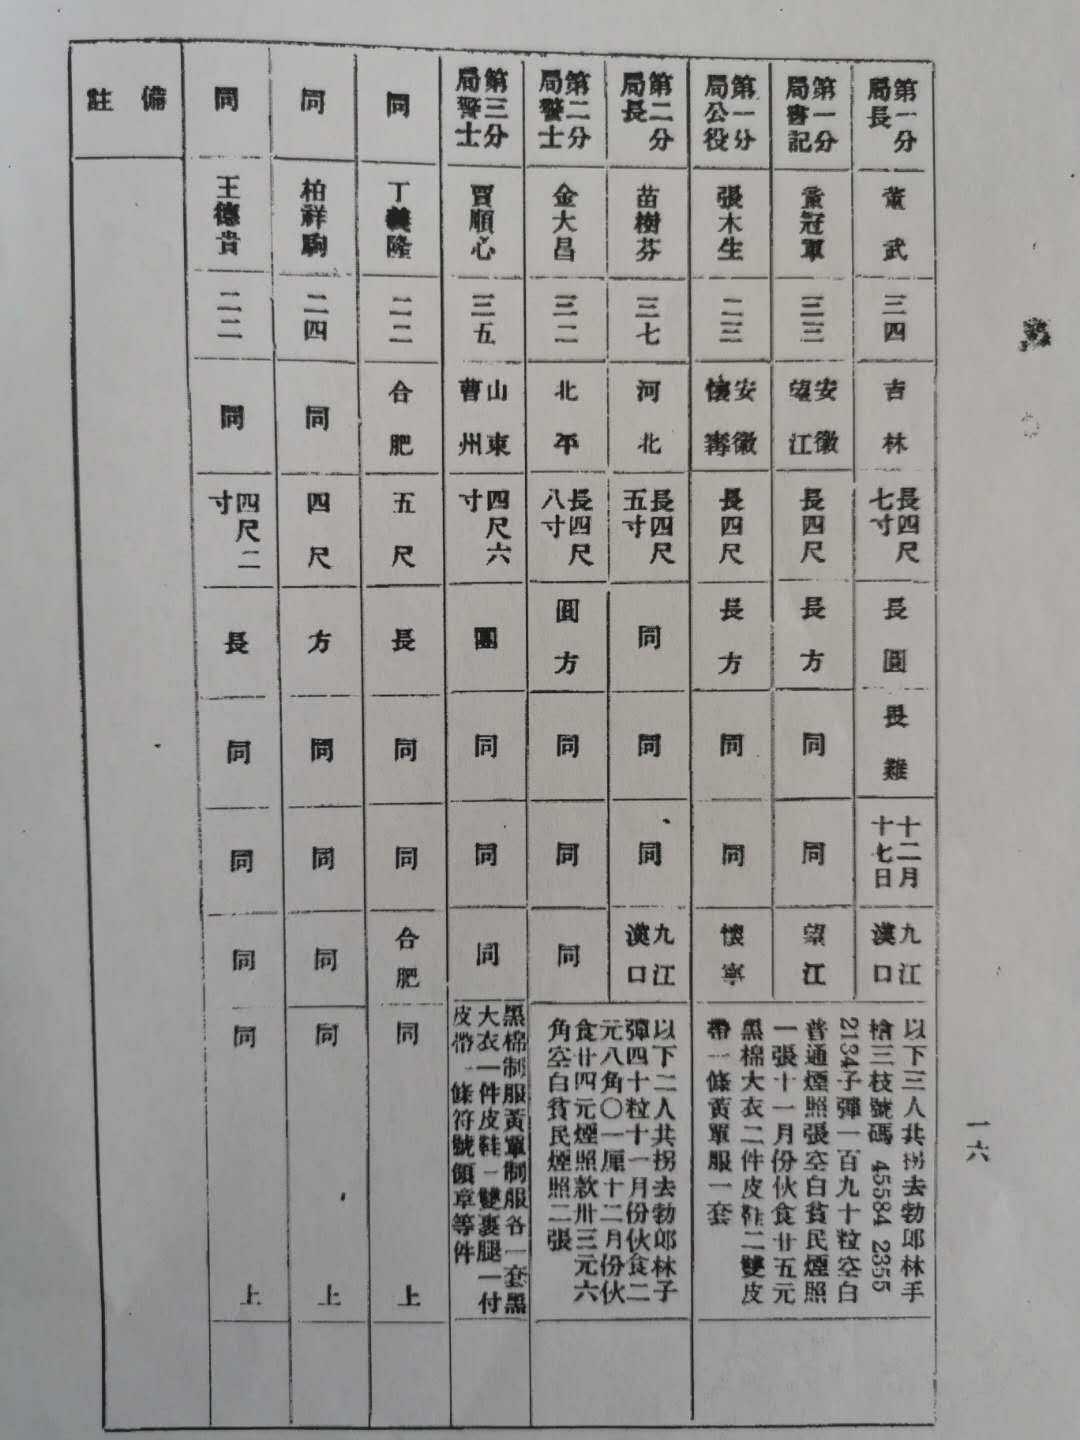 第一分局長
董武
三四
吉林
長四尺七寸
長圓
畏難
十二月十七日
九江漢口
以下三人共拐去勃郎林手
槍三枝號碼 45584 2355
2134子彈一百九十粒空白
普通煙照張空白貧民煙照
一張十一月份伙食廿五元
黑棉大衣二件皮鞋二雙皮
帶一條黃軍服一套
第一分局書記
董冠軍
三三
安徽望江
長四尺
長方
同
同
望江
第一分局公役
張木生
二三
安徽懷寧
長四尺
長方
同
同
懷寧
第二分局長
苗樹芬
三七
河北
長四尺五寸
同
同
同
九江漢口
以下二人共拐去勃郎林子
彈四十粒十一月份伙食二
元八角〇一厘十二月份伙
食廿四元煙照款卅三元六
角空白貧民煙照二張
第二分局警士
金大昌
三二
北平
長四尺八寸
圓方
同
同
同
第三分局警士
賈順心
三五
山東曹州
四尺六寸
團
同
同
同
黑棉制服黃軍制服各一套黑
大衣一件皮鞋一雙裹腿一付
皮帶一條符號領章等件
同
丁義隆
二二
合肥
五尺
長
同
同
合肥
同上
同
柏祥駒
二四
同
四尺
方
同
同
同
同上
同
王德貴
二二
同
四尺二寸
長
同
同
同
同上
備註
一六